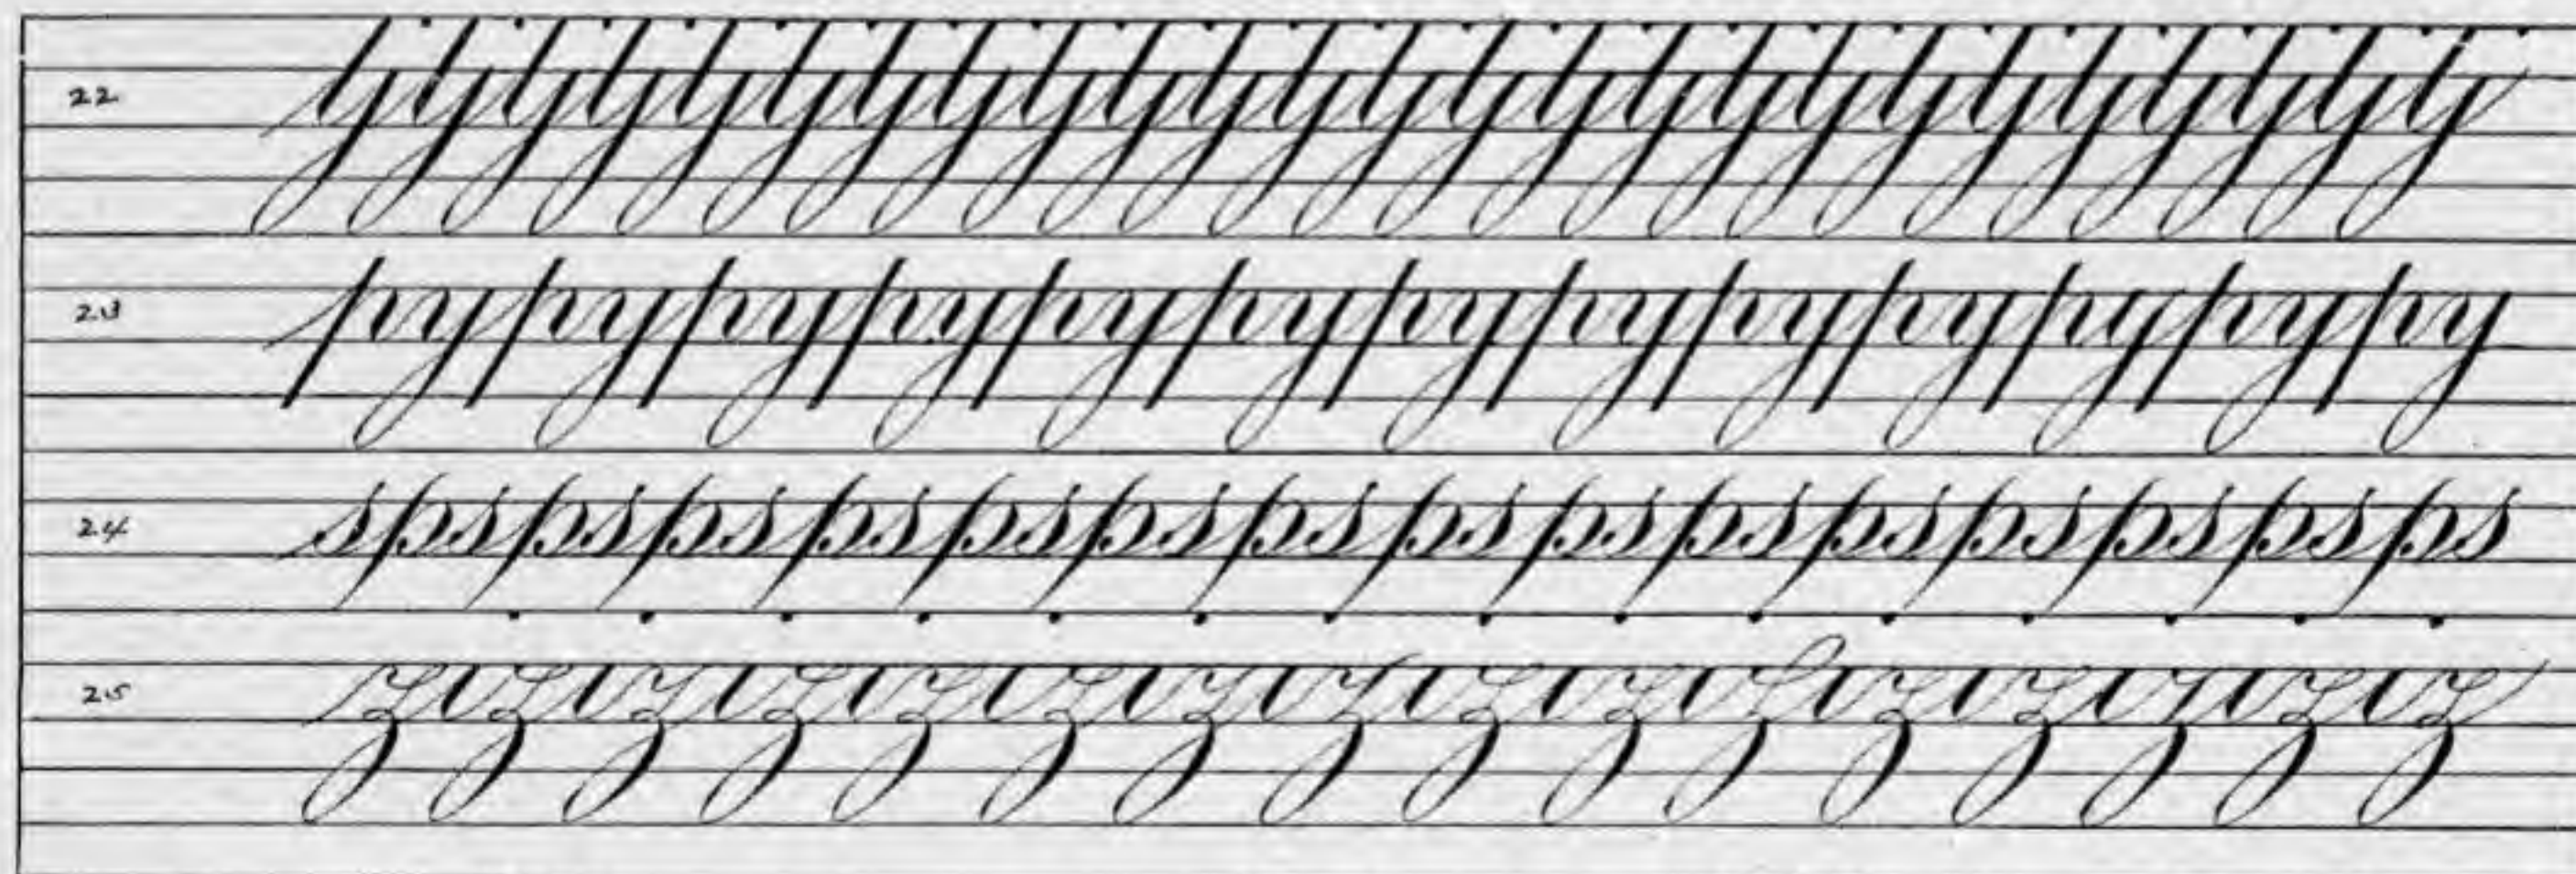 22 tjtjtjtjtjtjtjtjtjtjtjtjtjtjtjtjtjtjtjtjtjtjtjtjtj
23 pypypypypypypypypypypypypy
24 spspspspspspspspspspspspspspsps
25 ziziziziziziziziziziziziziziziz